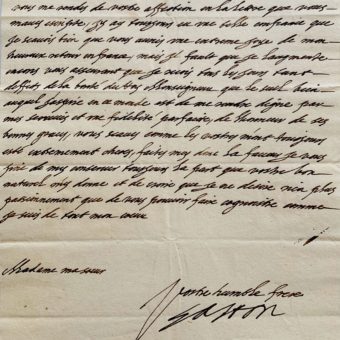 me rends de vostre affection en la lettre que vous
m'avez escripte, J'y ay tousjours eu une telle confiance que
Je sçavois bien que vous auries une extreme Joye de mon
heureux retour en france, mais il faut que Je
encores vous asseurant que Je reçois tous les Jours tant
d'effets de la bonté du Roy Monseigneur que le seul bien
auquel J'aspire en ce monde est de me rendre digne par
mes services et ma fidelité parfaitte, de l'honneur de ses
bonnes graces, vous comme les vostres m'ont tousjours
esté cherement cheres, faites moy donc la faveur Je vous
prie de me conserver tousjours la part que vostre bon
naturel m'y donne et de croire que Je ne desire rien plus
passionnement que de vous pouvoir faire cognoistre comme
Je suis de tout mon cœur
Madame ma sœur
Vostre humble frere
Gaston